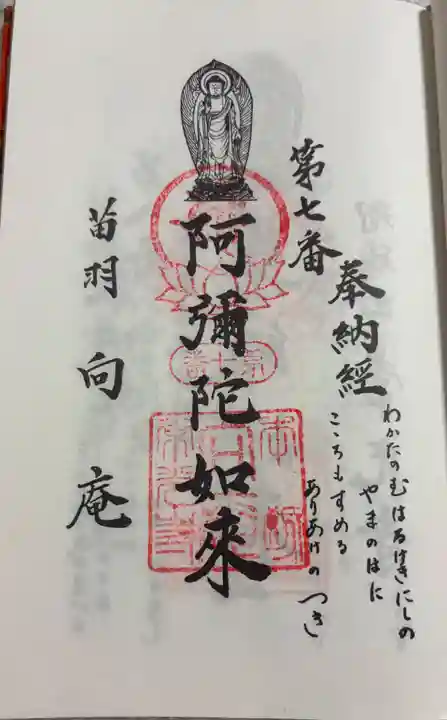 奉納經
第七番
わかたのむはるけきにしの
やまのはに
こころもすめる
ありあけのつき
阿彌陀如來
苗羽 向庵